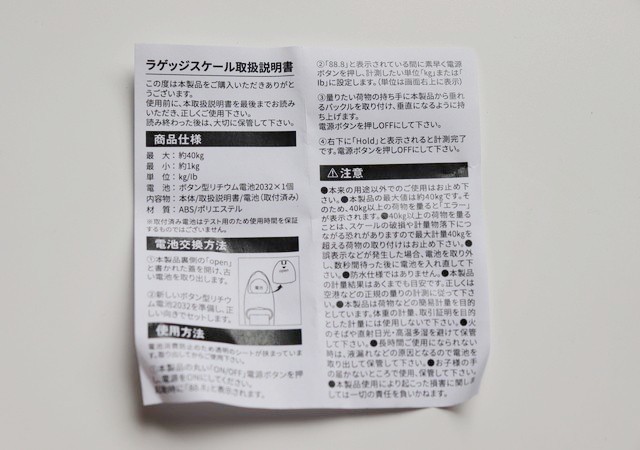 ラゲッジスケール取扱説明書
この度は本製品をご購入いただきありがとうございます。
使用前に、本取扱説明書を最後までお読みいただき、正しくご使用下さい。
読み終わった後は、大切に保管して下さい。
商品仕様
最 大：約40kg
最 小：約1kg
単 位：kg/lb
電 池：ボタン型リチウム電池2032×1個
内容物：本体/取扱説明書/電池（取付済み）
材 質：ABS/ポリエステル
※取付済み電池はテスト用のため使用時間を保証するものではございません。
電池交換方法
①本製品裏側の「open」
と書かれた蓋を開け、古
い電池を取り出します。
②新しいボタン型リチウ
ム電池2032を準備し、正
しい向きでセットします。
使用方法
電池消費防止のため透明のシートが挟まっています。取り出してからご使用下さい。
①本製品の丸い「ON/OFF」電源ボタンを押し、電源をONにしてください。
起動時に「88.8」と表示されます。
②「88.8」と表示されている間に素早く電源
ボタンを押し、計測したい単位「kg」または「
lb」に設定します。（単位は画面右上に表示）
③量りたい荷物の持ち手に本製品から垂れ
るバックルを取り付け、垂直になるように持
ち上げます。
電源ボタンを押しOFFにして下さい。
④右下に「Hold」と表示されると計測完了
です。電源ボタンを押しOFFにして下さい。
⚠注意
●本来の用途以外でのご使用はお止め下
さい。●本製品の最大値は約40kgです。そ
のため、40kg以上の荷物を量ると「エラー」
が表示されます。●40kg以上の荷物を量る
ことは、スケールの破損や計量物落下につ
ながる恐れがありますので最大計量40kgを
超える荷物の取り付けはお止め下さい。●
誤表示などが発生した場合、電池を取り外
し、数秒間待った後に電池を入れ直して下さ
い。●防水仕様ではありません。●本製品
の計量結果はあくまでも目安です。正しくは
空港などの正規の量りの計測に従って下さ
い。●本製品は荷物などの簡易計量を目的
としています。体重の計量、取引証明を目的
とした計量には使用しないで下さい。●火
のそばや直射日光・高温多湿を避けて保管
して下さい。●長時間ご使用になられない
時は、液漏れなどの原因となるので電池を
取り出して保管して下さい。●お子様の手
の届かないところで使用、保管して下さい。
●本製品使用により起こった損害に関しま
しては一切の責任を負いかねます。